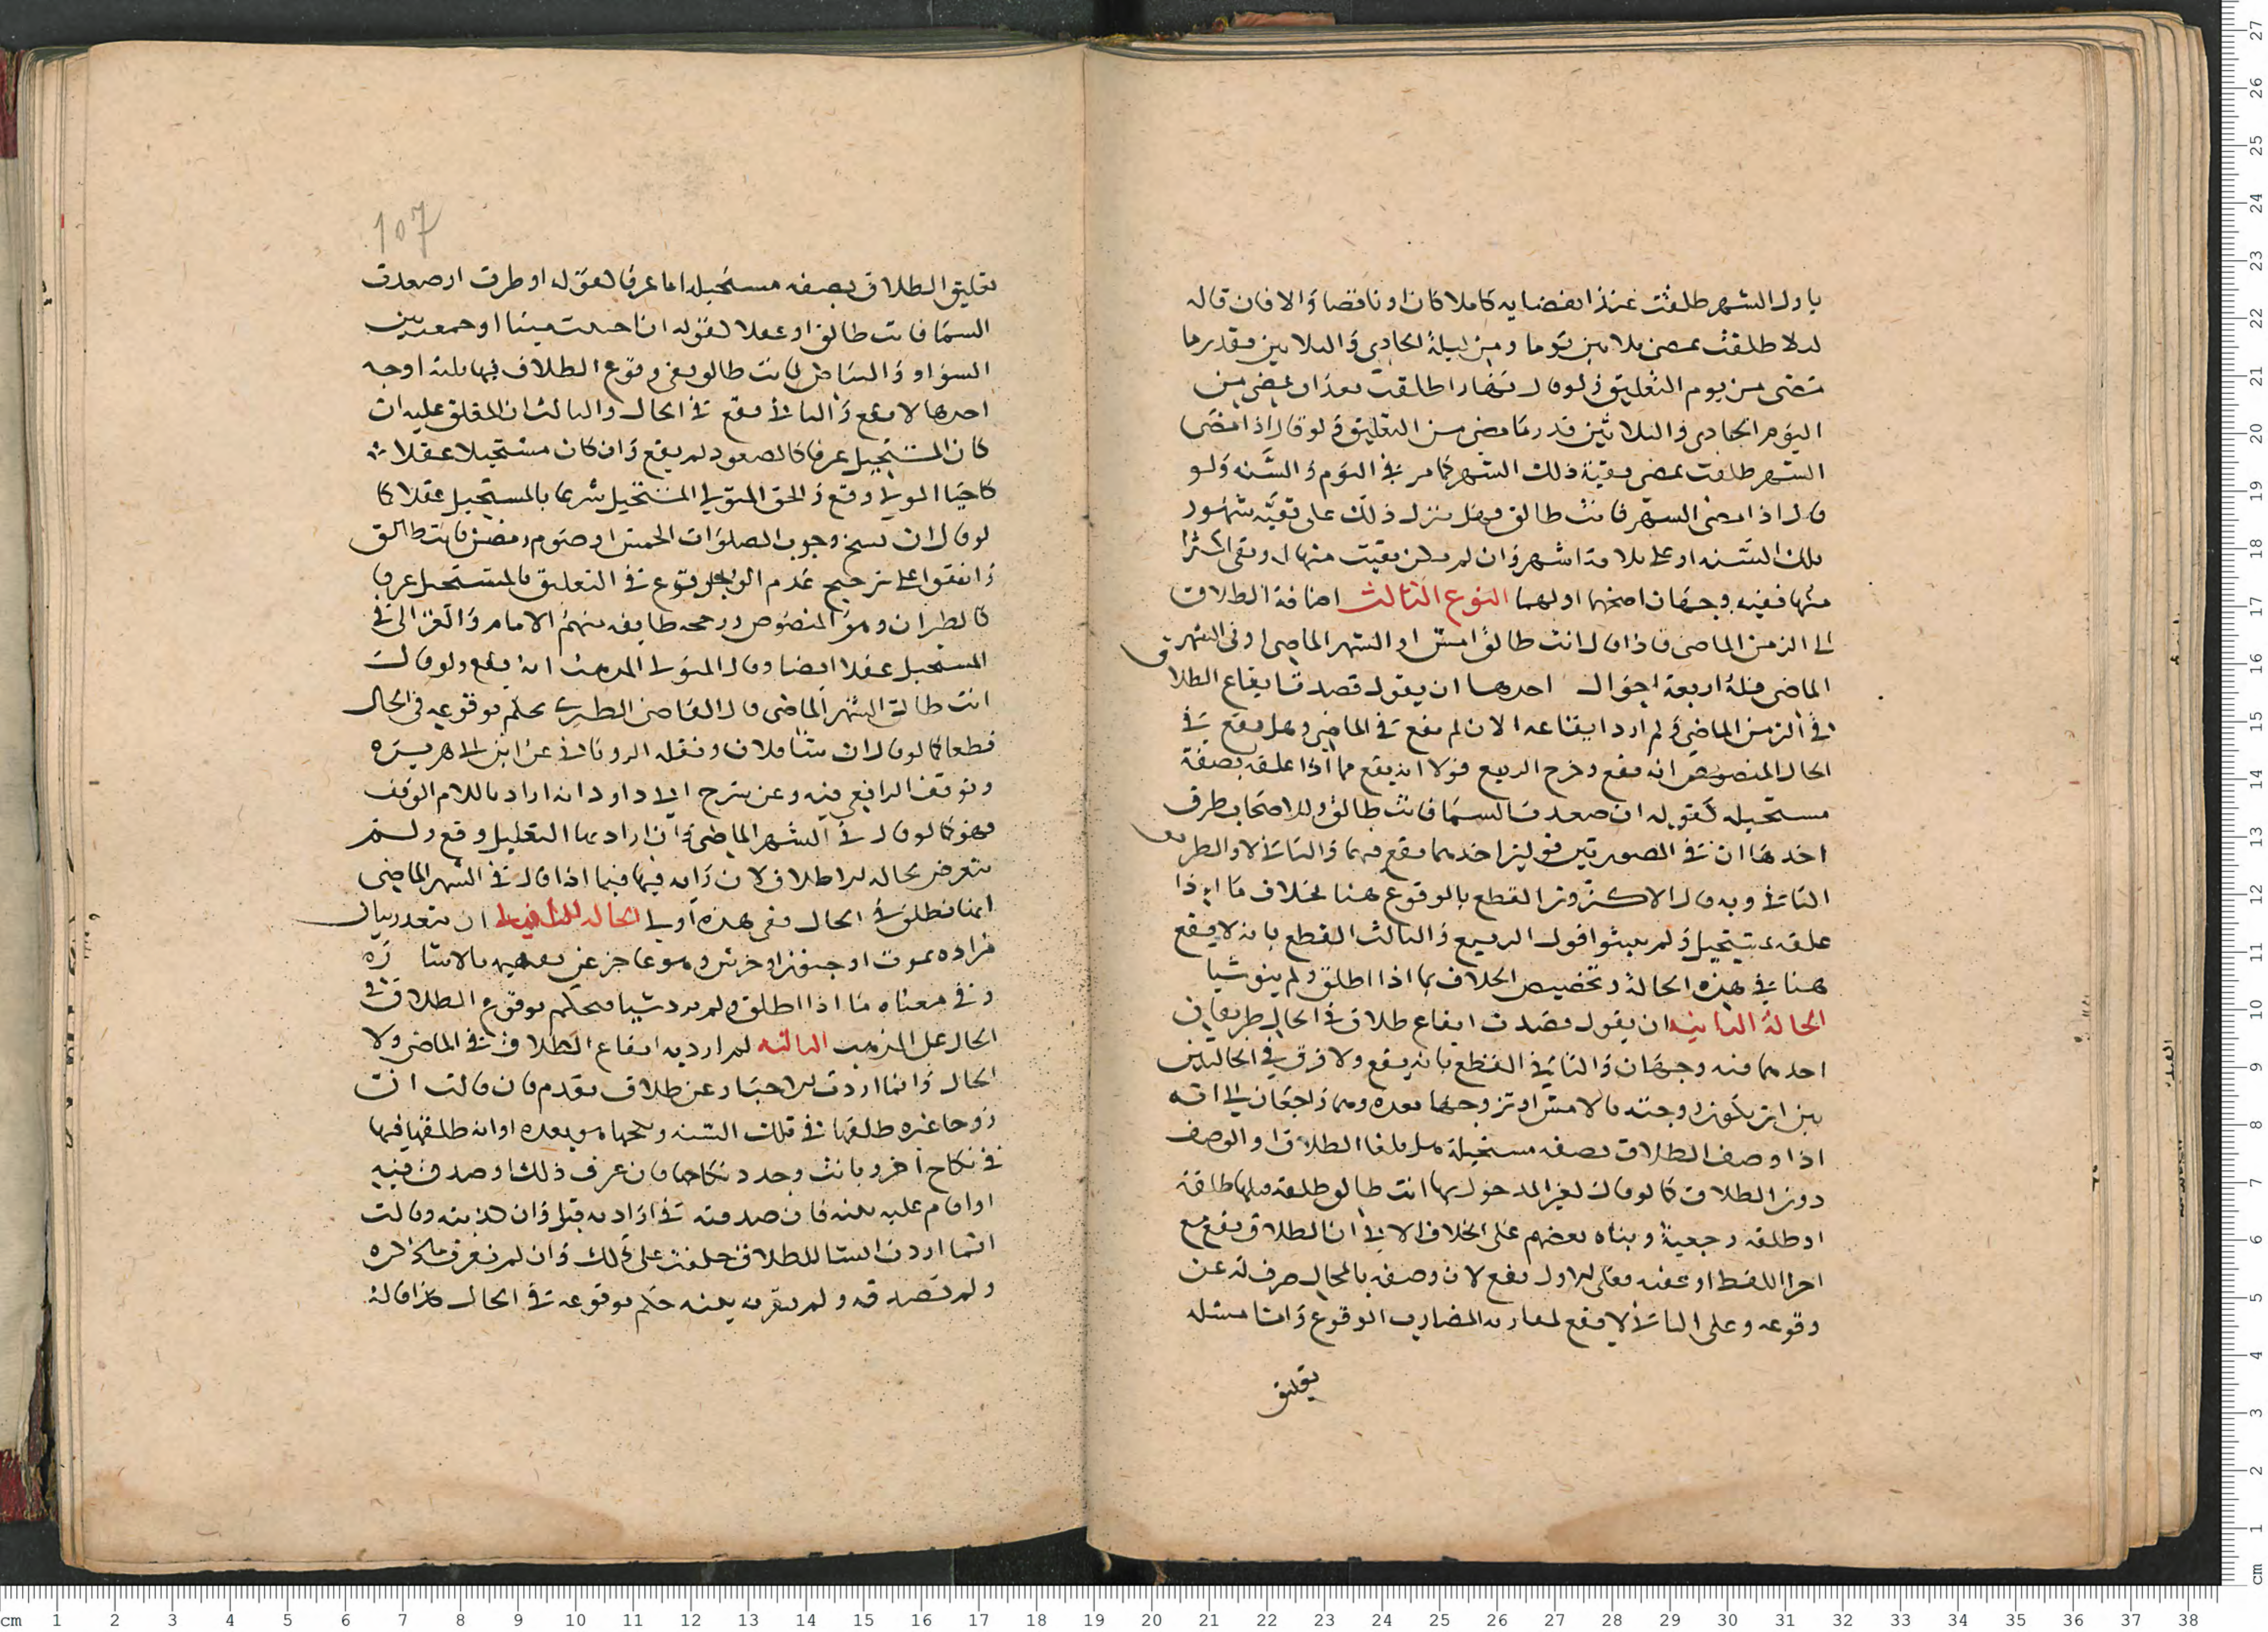 باول الشهر طلقت عند انقضايه كاملا كان او ناقصا والا فان قاله
ليلا طلقت بمضي ثلاثين يوما ومن ليلة الحادي والثلاثين بقدر ما
مضى من يوم التعليق ولو قال نهارا طلقت بعد ان يمضي من
اليوم الحادي والثلاثين قدر ما مضى من التعليق ولو قال اذا مضى
الشهر طلقت بمضي بقية ذلك الشهر كما مر في اليوم والسنة ولو
قال اذا مضى الشهر فانت طالق فهل ينزل ذلك على بقية شهور
تلك السنه او على ثلاثة اشهر وان لم يكن بقيت منها او بقي اكثر
منها ففيه وجهان اصحهما اولهما النوع الثالث اضافة الطلاق
الى الزمن الماضي فاذا قال انت طالق امس او الشهر الماضي او في الشهر
الماضي فله اربعة احوال احدها ان يقول قصدت ايقاع الطلاق
في الزمن الماضي ولم ارد ايقاعه الان لم يقع في الماضي وهل يقع في
الحال المنصوص انه يقع وخرج الربيع قولا انه يقع مما اذا علقه بصفة
مستحيله كقوله ان صعدت السما فانت طالق وللاصحاب طرق
احدها ان في الصورتين قولين احدهما يقع فيهما والثاني لا والطريق
الثاني وبه قال الاكثرون القطع بالوقوع هنا بخلاف ما اذا
علقه بمستحيل ولم يثبتوا قول الربيع والثالث القطع بانه لا يقع
هنا في هذه الحالة وتخصيص الخلاف بما اذا اطلق ولم ينو شيا
الحالة الثانيه ان يقول قصدت ايقاع طلاق في الحال طريقان
احدهما فيه وجهان والثاني القطع بانه يقع ولا فرق في الحالتين
بين ان تكون زوجته بالامس او تزوجها بعده وهما راجعان الى انه
اذا وصف الطلاق بصفه مستحيلة هل يلغا الطلاق او الوصف
دون الطلاق كما لو قال لغير المدخول بها انت طالق طلقه قبلها طلقة
او طلقه رجعية وبناه بعضهم على الخلاف الاتي في ان الطلاق يقع مع
اخر اللفظ او عقبه فعلى الاول يقع لان وصفه بالمحال صرف له عن
وقوعه وعلى الثاني لا يقع المضارب الوقوع واما مسله
تعليق
107
تعليق الطلاق بصفه مستحيله اما عرفا كقوله ان طرت او صعدت
السما فانت طالق او عقلا كقوله ان احييت ميتا او جمعت بين
السواد والبياض فانت طالق ففي وقوع الطلاق فيها ثلثة اوجه
احدها لا يقع والثاني يقع في الحال والثالث ان المعلق عليه ان
كان المستحيل عرفا كالصعود لم يقع وان كان مستحيلا عقلا
كاحيا الموتى وقع والحق المتولي المستحيل شرعا بالمستحيل عقلا كما
لو قال ان نسخ وجوب الصلوات الخمس او صوم رمضن فانت طالق
واتفقوا على ترجيح عدم الوقوع في التعليق بالمستحيل عرفا
كالطيران وهو المنصوص ورجحه طايفه منهم الامام والغزالي في
المستحيل عقلا ايضا وقال المتولي المذهب انه يقع ولو قال
انت طالق الشهر الماضي قال القاضي الطبري يحكم بوقوعه في الحال
قطعا كما لو قال ان شا فلان ونقله الروياني عن ابن ابي هريره
وتوقف الرافعي فيه وعن شرح ابي داود انه ان اراد باللام الوقت
فهو كما لو قال في الشهر الماضي وان اراد بها التعليل وقع ولم
يتعرض لحاله الاطلاق لان رايه فيها فيما اذا قال في الشهر الماضي
انها تطلق في الحال ففي هذه اولى الحاله الثانيه ان يتعذر بيان
مراده بموت او جنون او خرس وهو عاجز عن تفهيم بالاشارة
وفي معناه ما اذا اطلق ولم يرد شيا فيحكم بوقوع الطلاق في
الحال على المذهب الثالثه لم ارد به ايقاع الطلاق في الماضي ولا
الحال وانما اردت الاخبار عن طلاق تقدم فان قالت ان
زوجا غيره طلقها في تلك السنه ونكحها هو بعده او انه طلقها فيها
في نكاح اخر وبانت وجدد نكاحها فان عرف ذلك او صدقته فيه
او اقام عليه بينه فان صدقته في ارادته قبل وان كذبته وقالت
انما اردت انشا الطلاق حلف على ذلك وان لم نعرف ما ذكره
ولم تصدقه ولم تقم به بينه حكم بوقوعه في الحال هذا قاله